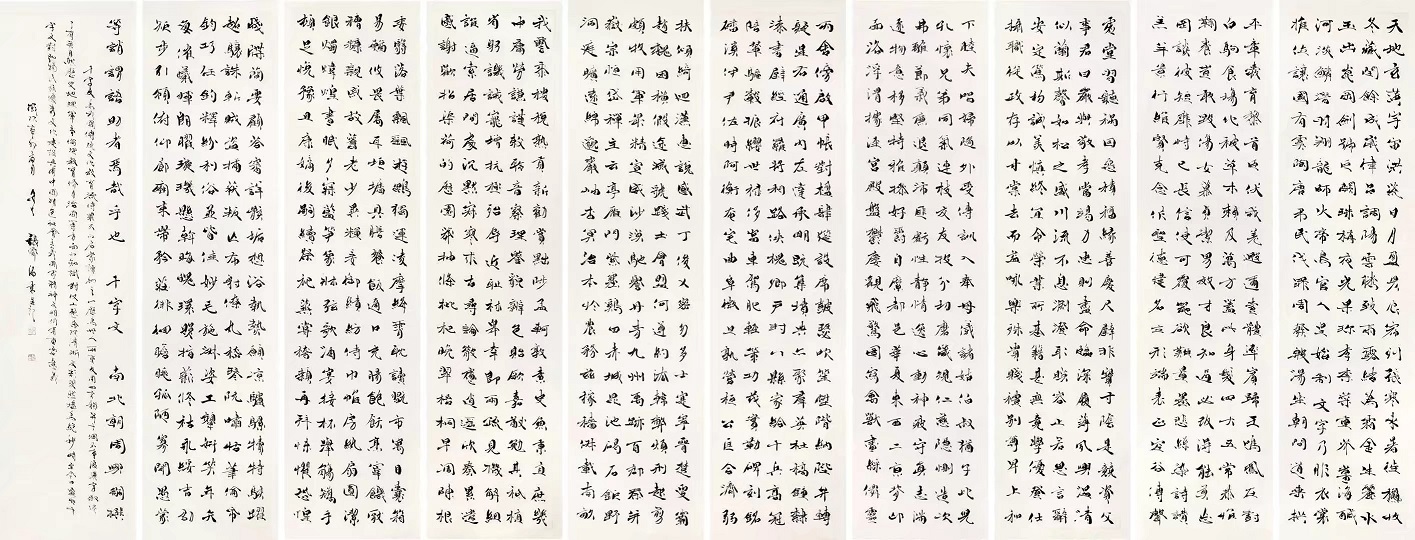 天地玄黃宇宙洪荒日月盈昃辰宿列張寒來暑往秋收
冬藏閏餘成歲律呂調陽雲騰致雨露結為霜金生麗水
玉出崑岡劍號巨闕珠稱夜光果珍李柰菜重芥薑海鹹
河淡鱗潛羽翔龍師火帝鳥官人皇始制文字乃服衣裳
推位讓國有虞陶唐弔民伐罪周發殷湯坐朝問道垂拱
平章愛育黎首臣伏戎羌遐邇壹體率賓歸王鳴鳳在樹
白駒食場化被草木賴及萬方蓋此身髮四大五常恭惟
鞠養豈敢毀傷女慕貞潔男效才良知過必改得能莫忘
罔談彼短靡恃己長信使可覆器欲難量墨悲絲染詩讚
羔羊景行維賢克念作聖德建名立形端表正空谷傳聲
虛堂習聽禍因惡積福緣善慶尺璧非寶寸陰是競資父
事君曰嚴與敬孝當竭力忠則盡命臨深履薄夙興溫凊
似蘭斯馨如松之盛川流不息淵澄取映容止若思言辭
安定篤初誠美慎終宜令榮業所基籍甚無竟學優登仕
攝職從政存以甘棠去而益詠樂殊貴賤禮別尊卑上和
下睦夫唱婦隨外受傅訓入奉母儀諸姑伯叔猶子比兒
孔懷兄弟同氣連枝交友投分切磨箴規仁慈隱惻造次
弗離節義廉退顛沛匪虧性靜情逸心動神疲守真志滿
逐物意移堅持雅操好爵自縻都邑華夏東西二京背邙
面洛浮渭據涇宮殿盤鬱樓觀飛驚圖寫禽獸畫彩仙靈
丙舍傍啟甲帳對楹肆筵設席鼓瑟吹笙陞階納陛弁轉
疑星右通廣內左達承明既集墳典亦聚群英杜稿鍾隸
漆書壁經府羅將相路俠槐卿戶封八縣家給千兵高冠
陪輦驅轂振纓世祿侈富車駕肥輕策功茂實勒碑刻銘
磻溪伊尹佐時阿衡奄宅曲阜微旦孰營桓公匡合濟弱
扶傾綺迴漢惠說感武丁俊乂密勿多士寔寧晉楚更霸
趙魏困橫假途滅虢踐土會盟何遵約法韓弊煩刑起翦
頗牧用軍最精宣威沙漠馳譽丹青九州禹跡百郡秦并
嶽宗恒岱禪主云亭雁門紫塞雞田赤城昆池碣石鉅野
洞庭曠遠綿邈巖岫杳冥治本於農務茲稼穡俶載南畝
我藝黍稷稅熟貢新勸賞黜陟孟軻敦素史魚秉直庶幾
中庸勞謙謹敕聆音察理鑑貌辨色貽厥嘉猷勉其祗植
省躬譏誡寵增抗極殆辱近恥林皋幸即兩疏見機解組
誰逼索居閑處沉默寂寥求古尋論散慮逍遙欣奏累遣
慼謝歡招渠荷的歷園莽抽條枇杷晚翠梧桐早凋陳根
委翳落葉飄颻遊鵾獨運凌摩絳霄耽讀翫市寓目囊箱
易輶攸畏屬耳垣牆具膳餐飯適口充腸飽飫烹宰飢厭
糟糠親戚故舊老少異糧妾御績紡侍巾帷房紈扇圓潔
銀燭煒煌晝眠夕寐藍筍象床弦歌酒宴接杯舉觴矯手
頓足悅豫且康嫡後嗣續祭祀蒸嘗稽顙再拜悚懼恐惶
牋牒簡要顧答審詳骸垢想浴執熱願涼驢騾犢特駭躍
超驤誅斬賊盜捕獲叛亡布射僚丸嵇琴阮嘯恬筆倫紙
鈞巧任釣釋紛利俗並皆佳妙毛施淑姿工顰妍笑年矢
每催曦暉朗曜璇璣懸斡晦魄環照指薪修祜永綏吉劭
矩步引領俯仰廊廟束帶矜莊徘徊瞻眺孤陋寡聞愚蒙
等誚謂語助者焉哉乎也 千字文 南北朝周興嗣撰